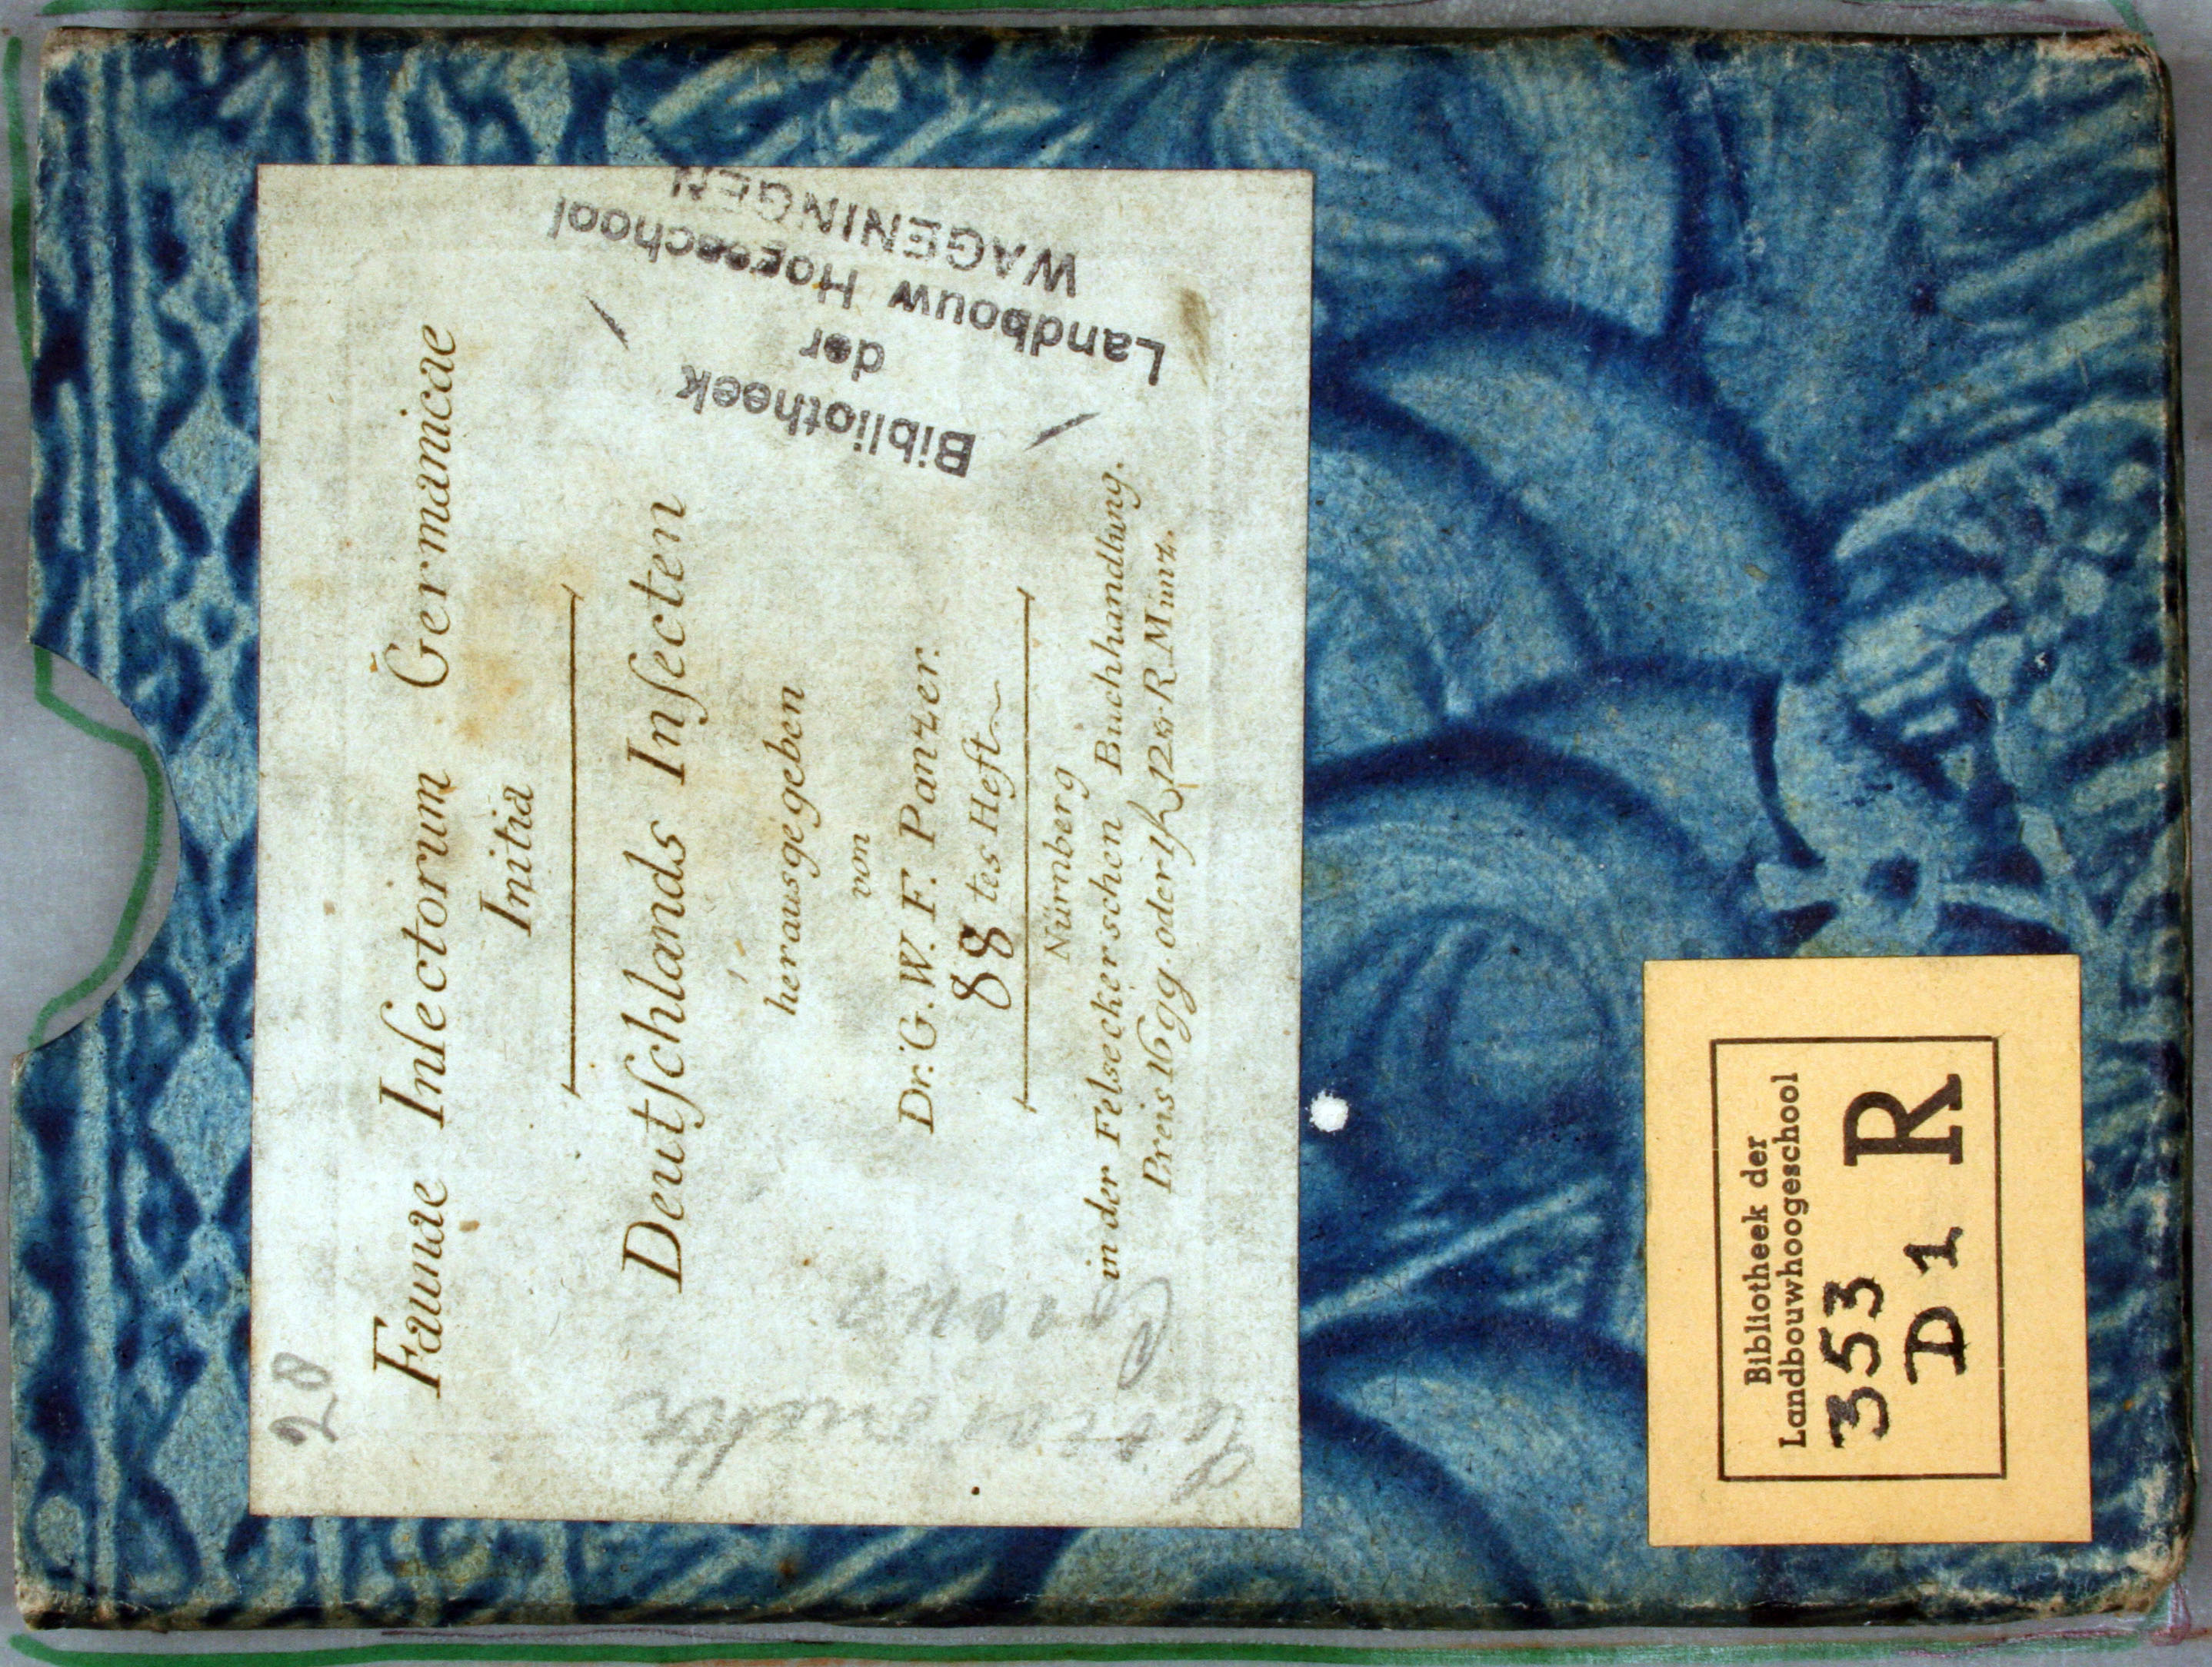 28
Faunae Insectorum Germanicae
Initia
Deutſchlands Inſecten
herausgegeben
von
Dr. G. W. F. Panzer.
88 tes Heft
Nürnberg
in der Felseckerschen Buchhandlung.
Preis 16 ggr. oder 1 12 xr. R. Münz.
Bibliotheek
der
Landbouw Hogeschool
WAGENINGEN
Bibliotheek der
Landbouwhoogeschool
353
D 1 R